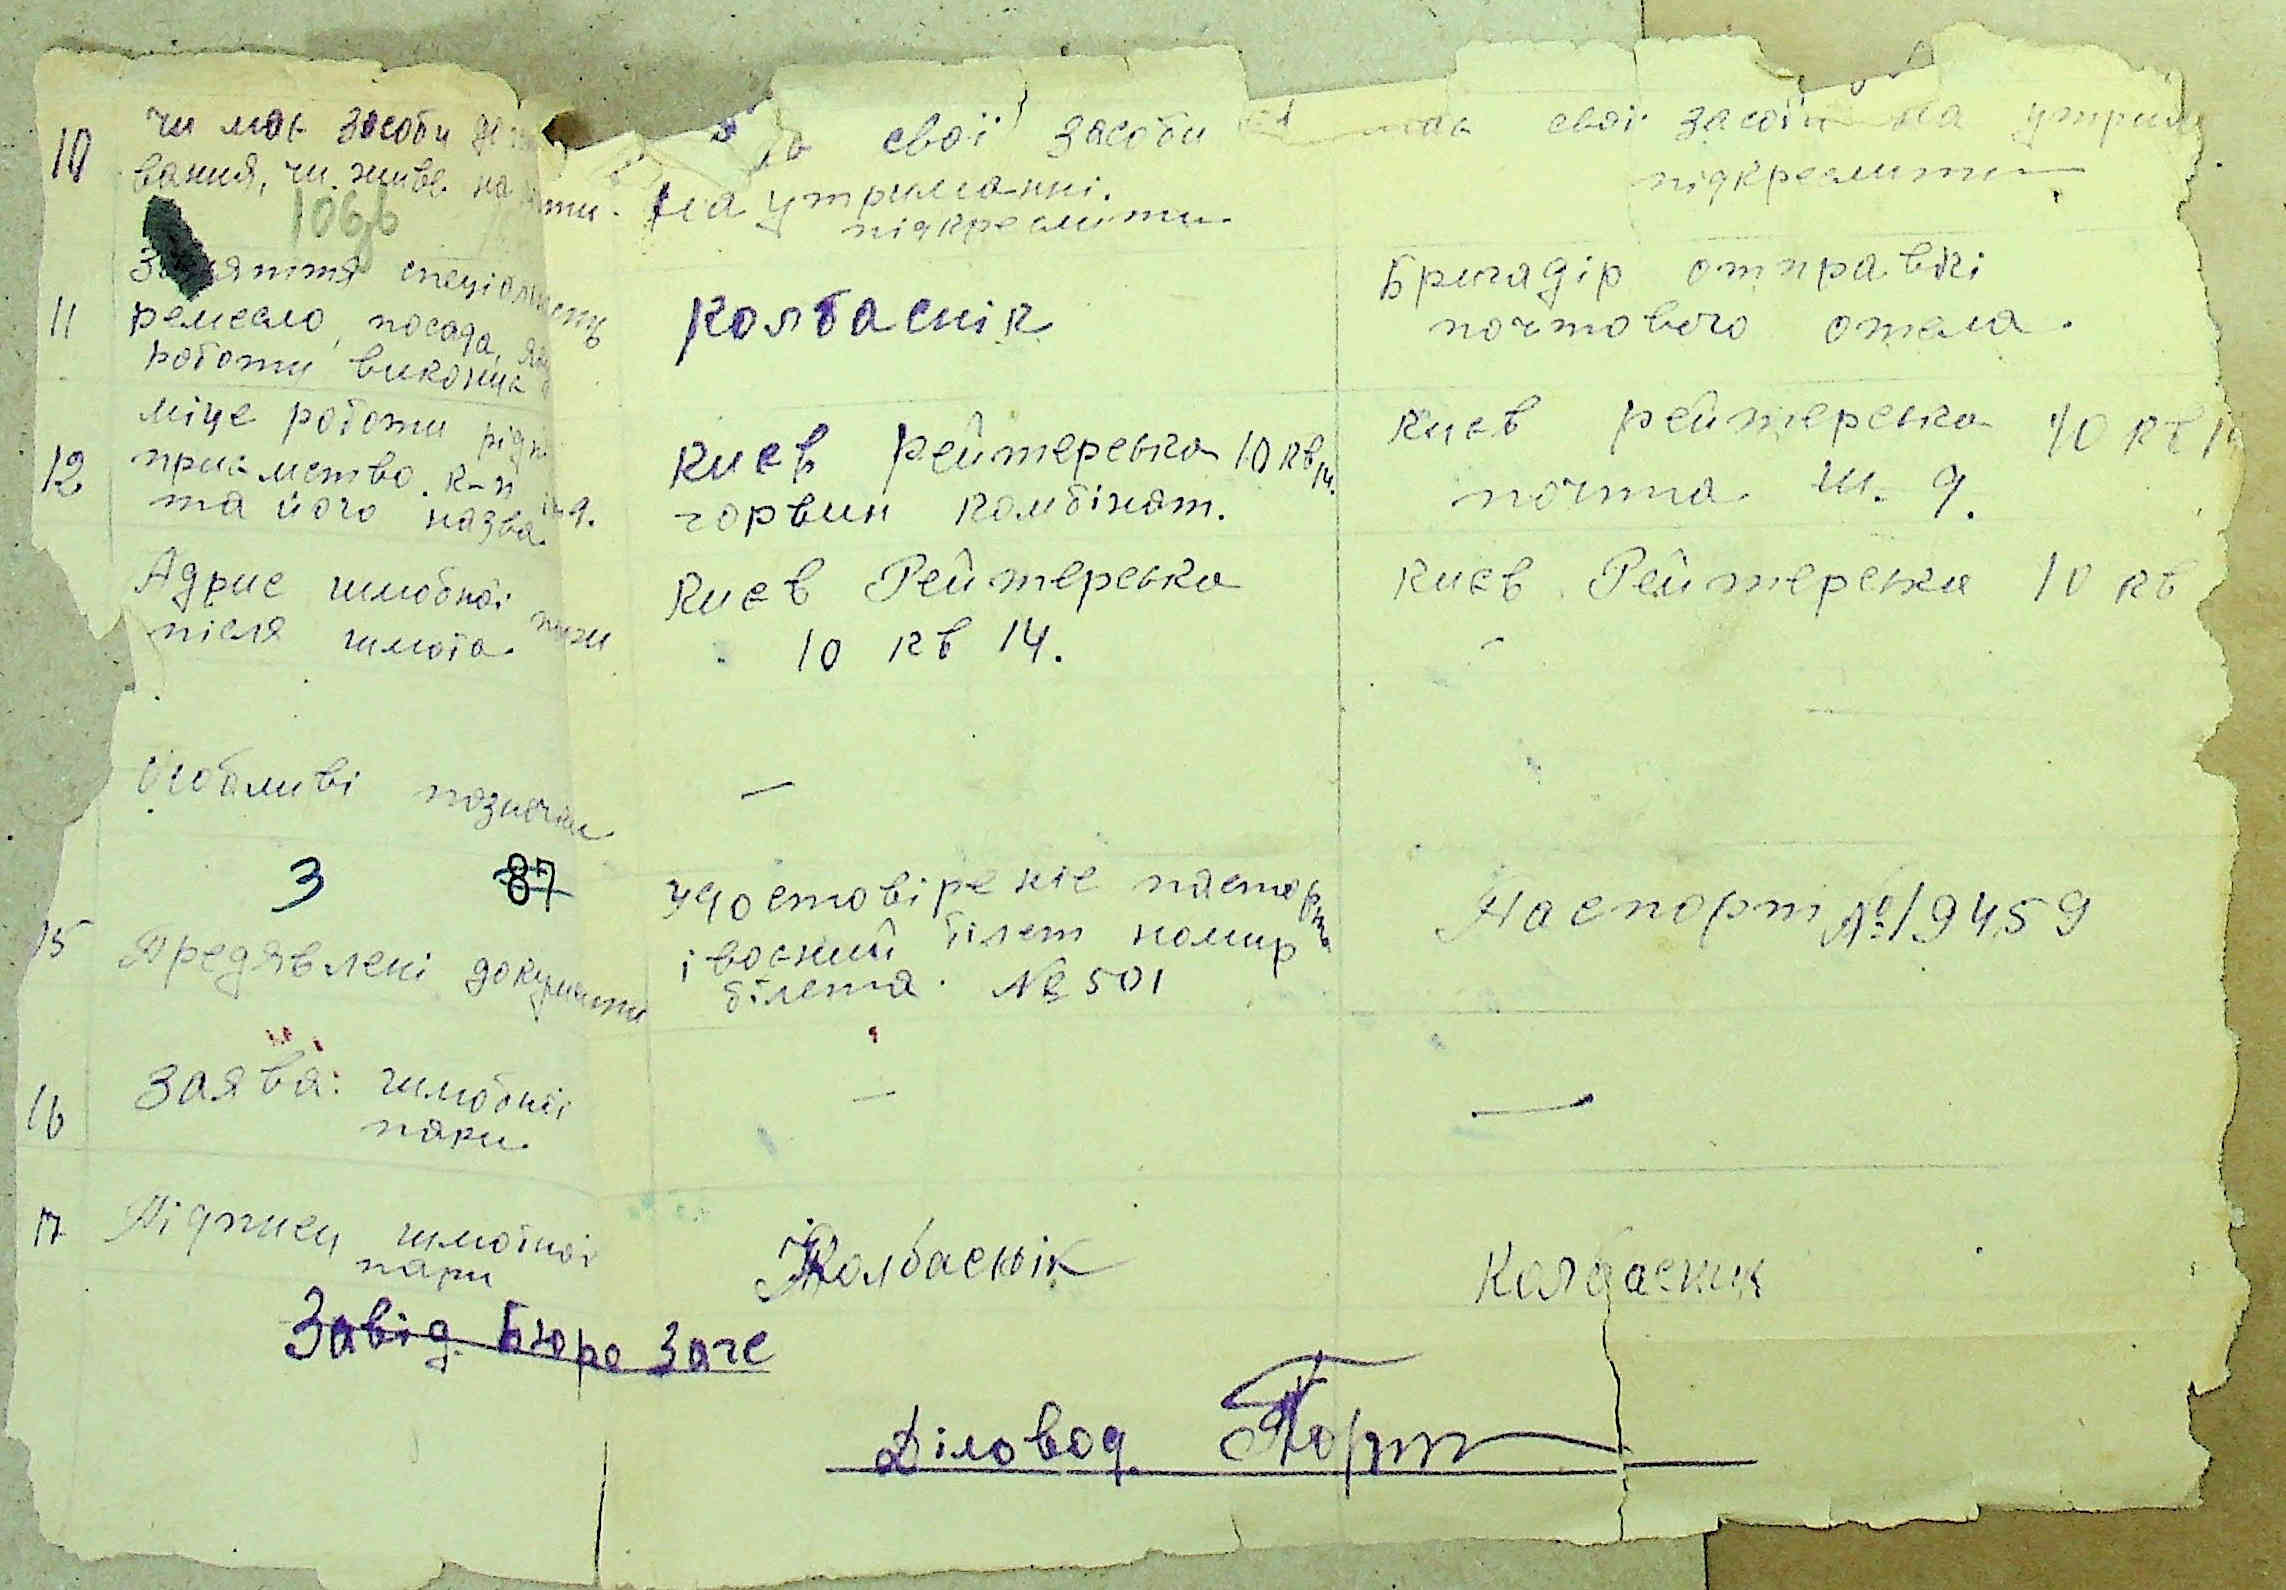 10 чи має засоби до
вання, чи живе на
свої засоби
На утриманні.
підкреслити.
має свої засоби на утрим
підкреслити
106
11 Заняття спеціальність
ремесло, посада, яку
роботу виконує
Колбаснік
Бригадір отправкі
почтового отела.
12 Міце роботи підп
приємство. к-п
та його назва
Києв Рейтерська 10 кв 14.
горвин комбінат.
Києв Рейтерська 10 кв 14
почта Ш. 9.
Адрис шлюбної пари
після шлюба.
Києв Рейтерська
10 кв 14.
Києв Рейтерська 10 кв
Особливі позначки
—
3 87
15 Предявлені документи
удостовіреніе паспорта
і воєний білет номир
білета. № 501
Паспорт № 19459
16 Заява: шлюбної
пари.
—
—
17 Підписи шлюбної
пари
Колбаснік
Колбасник
Завід. Бюро Загс
Діловод. Порт